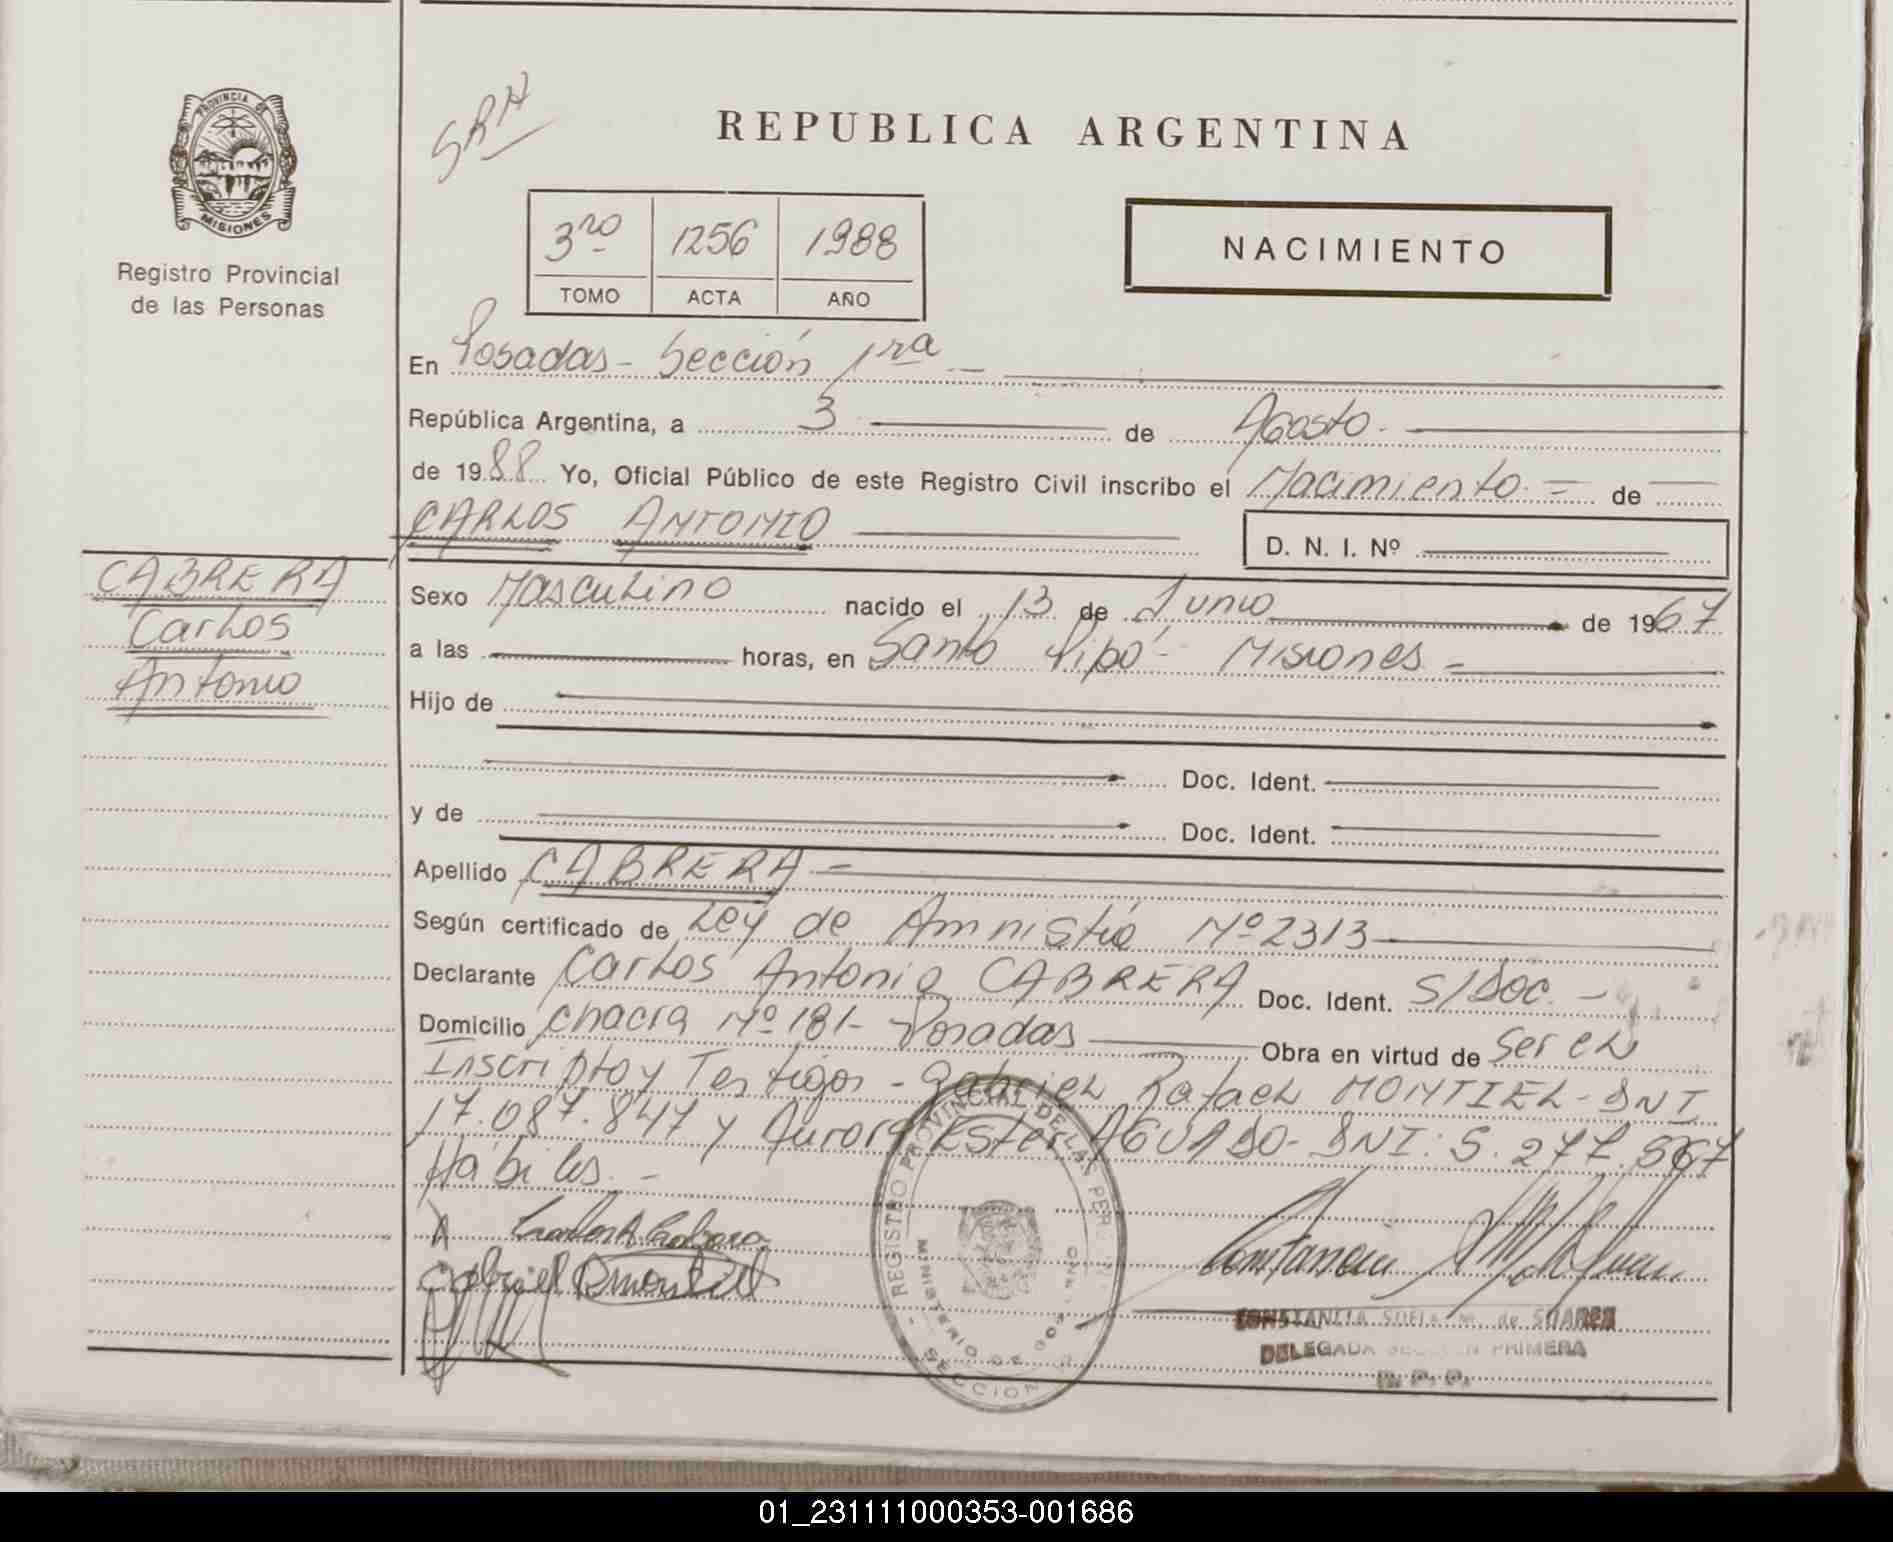 PROVINCIA DE
MISIONES
Registro Provincial
de las Personas
SRA
REPUBLICA ARGENTINA
3ro 1256 1988
TOMO ACTA AÑO
NACIMIENTO
En Posadas - Sección 1ra -
República Argentina, a 3 de Agosto.
de 1988 Yo, Oficial Público de este Registro Civil inscribo el Nacimiento - de
CARLOS ANTONIO
D. N. I. Nº
CABRERA
Carlos
Antonio
Sexo Masculino nacido el 13 de Junio de 1967
a las horas, en Santo Pipó - Misiones -
Hijo de
Doc. Ident.
y de Doc. Ident.
Apellido CABRERA -
Según certificado de Ley de Amnistía Nº 2313
Declarante Carlos Antonio CABRERA Doc. Ident. S/Doc. -
Domicilio Chacra Nº 181 - Posadas Obra en virtud de Ser el
Inscripto y Testigos - Gabriel Rafael MONTIEL - DNI
17.087.847 y Aurora Ester AGUADO - DNI: 5.277.567
Hábiles. -
X Carlos A Cabrera
Gabriel R Montiel
REGISTRO PROVINCIAL DE LAS PER
MINISTERIO DE GOB
SECCION
CONSTANCIA SOFIA M. de SUAREZ
DELEGADA SECCION PRIMERA
R. P. P.
01_231111000353-001686